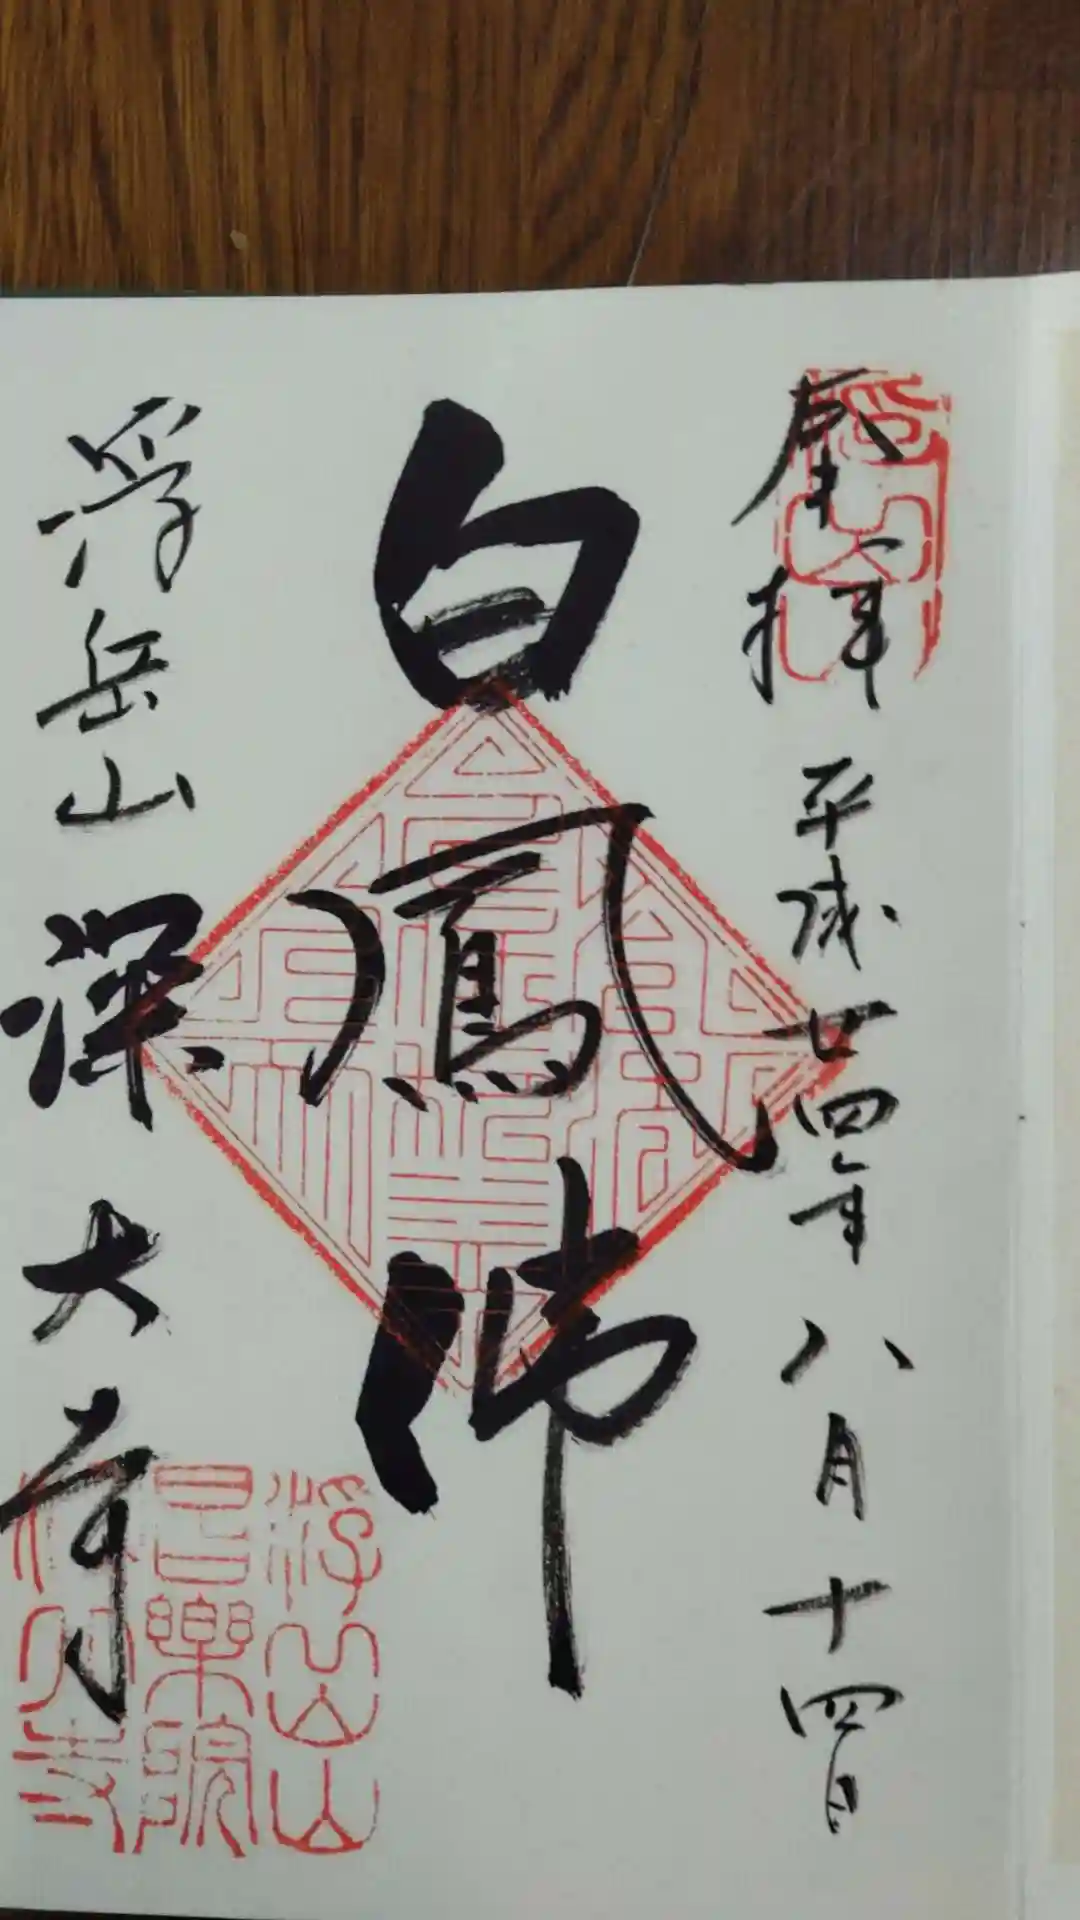 奉拝 平成廿四年八月十四日
白鳳佛
浮岳山 深大寺
浮岳山
昌樂院
深大寺